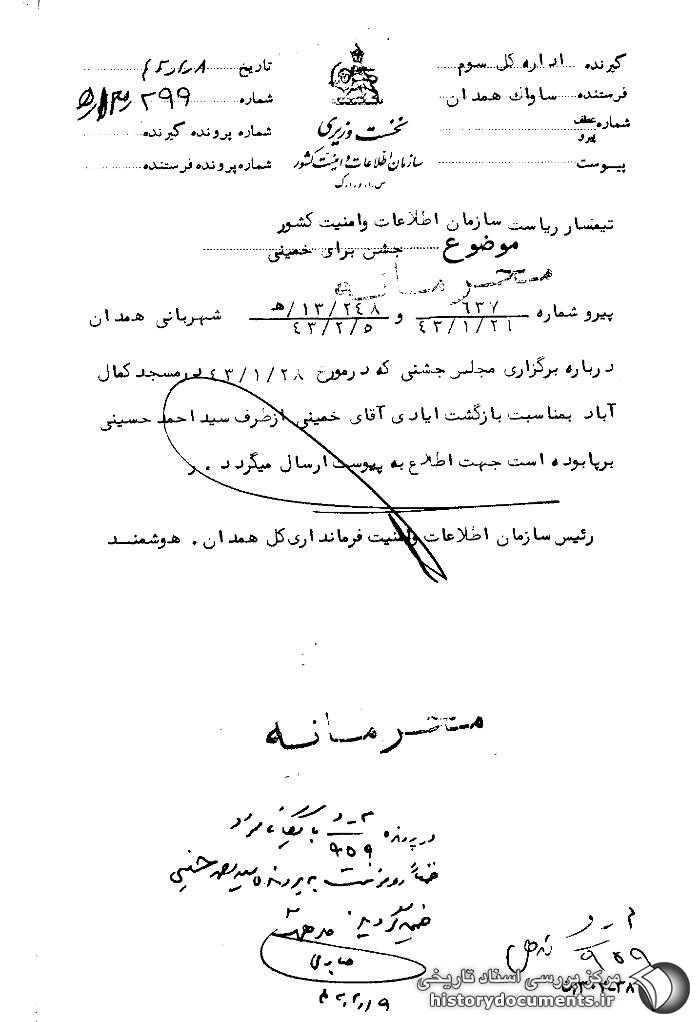 گیرنده اداره کل سوم
فرستنده ساواک همدان
شماره عطف پیرو
پیوست
نخست وزیری
سازمان اطلاعات و امنیت کشور
س.ا.و.ا.ک
تاریخ
شماره ۲۹۹
شماره پرونده گیرنده
شماره پرونده فرستنده
تیمسار ریاست سازمان اطلاعات وامنیت کشور
موضوع جشن برای خمینی
محرمانه
پیرو شماره ۶۳۷ ۴۳/۱/۲۱ و ۱۳/۲۴۸/ه ۴۳/۲/۵ شهربانی همدان
درباره برگزاری مجلس جشنی که درمورخ ۴۳/۱/۲۸ درمسجد کمال
آباد بمناسبت بازگشت ایادی آقای خمینی ازطرف سید احمد حسینی
برپابوده است جهت اطلاع به پیوست ارسال میگردد . ر
رئیس سازمان اطلاعات وامنیت فرمانداری کل همدان . هوشمند
محرمانه
در پرونده
۹۵۹
۹۵۹
مرکز بررسی اسناد تاریخی
historydocuments.ir